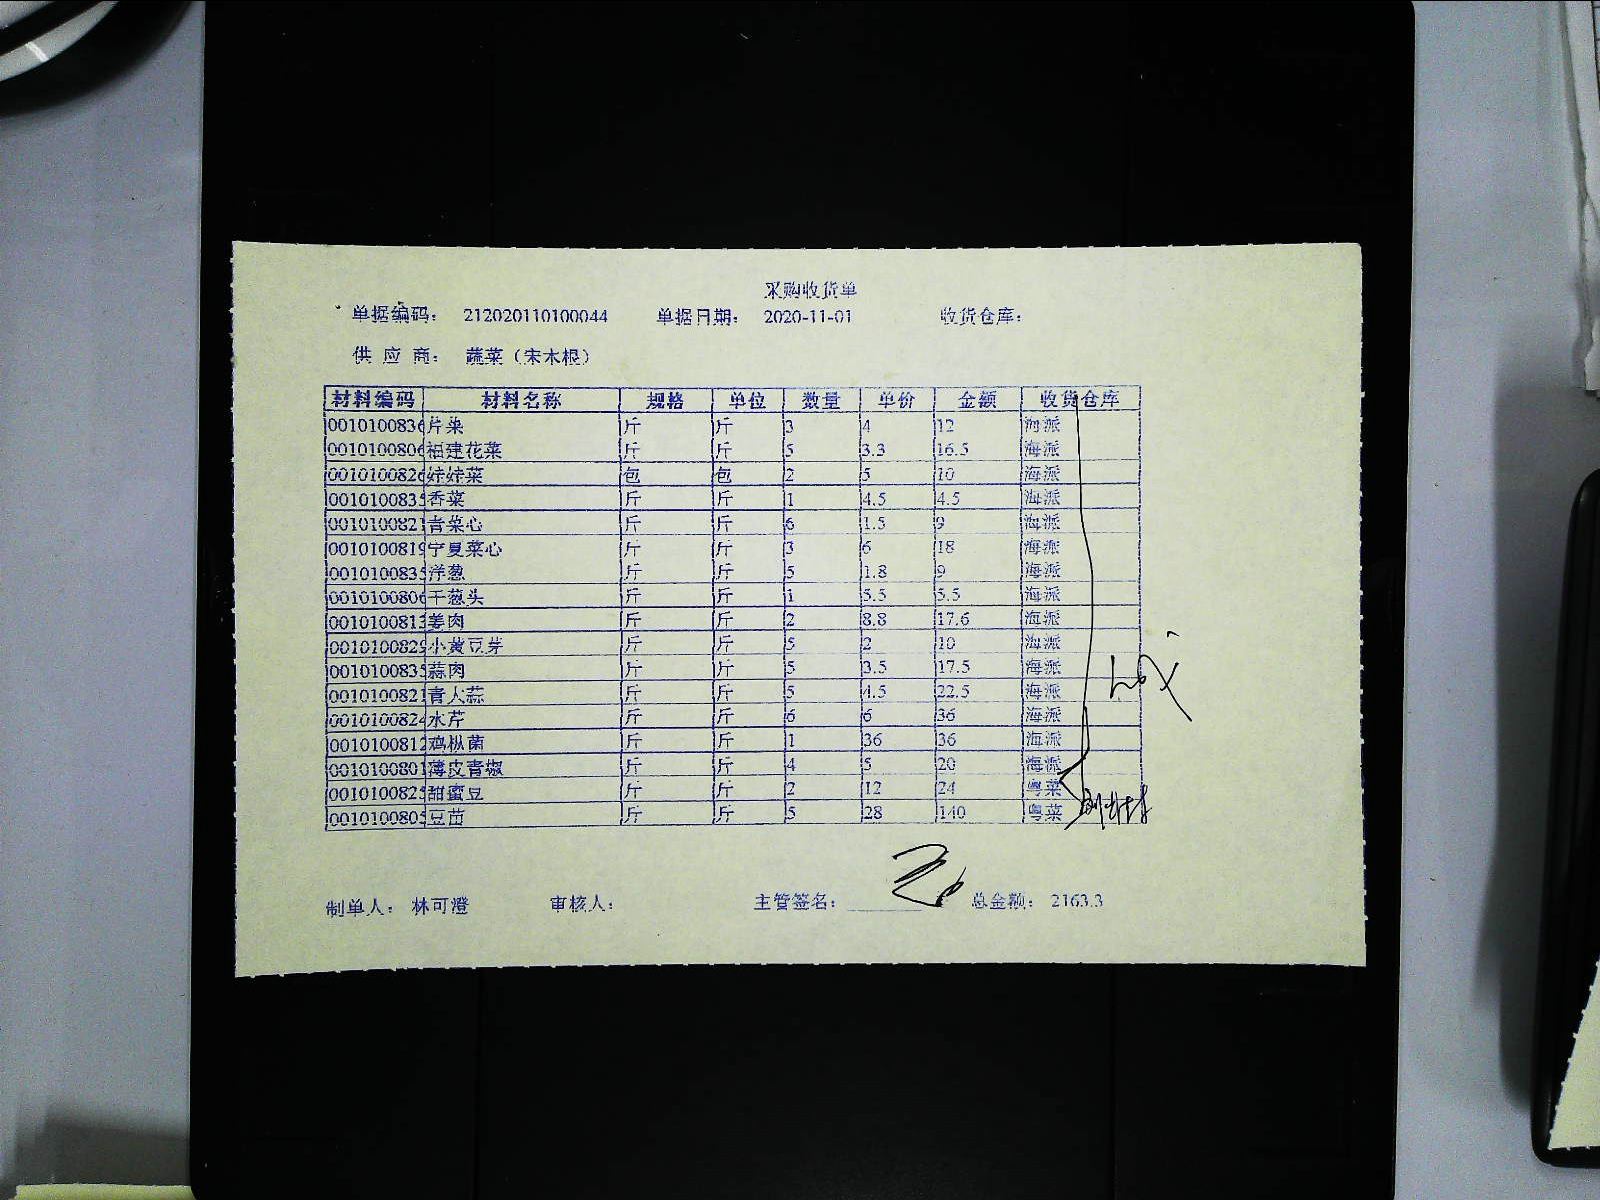 采购收货单
单据编码： 212020110100044 单据日期： 2020-11-01 收货仓库：
供 应 商： 蔬菜（宋木根）
材料编码 材料名称 规格 单位 数量 单价 金额 收货仓库
0010100836 芹菜 斤 斤 3 4 12 海派
0010100806 福建花菜 斤 斤 5 3.3 16.5 海派
0010100826 娃娃菜 包 包 2 5 10 海派
0010100835 香菜 斤 斤 1 4.5 4.5 海派
0010100821 青菜心 斤 斤 6 1.5 9 海派
0010100819 宁夏菜心 斤 斤 3 6 18 海派
0010100835 洋葱 斤 斤 5 1.8 9 海派
0010100806 干葱头 斤 斤 1 5.5 5.5 海派
0010100813 姜肉 斤 斤 2 8.8 17.6 海派
0010100829 小黄豆芽 斤 斤 5 2 10 海派
0010100835 蒜肉 斤 斤 5 3.5 17.5 海派
0010100821 青大蒜 斤 斤 5 4.5 22.5 海派
0010100824 水芹 斤 斤 6 6 36 海派
0010100812 鸡枞菌 斤 斤 1 36 36 海派
0010100801 薄皮青椒 斤 斤 4 5 20 海派
0010100825 甜蜜豆 斤 斤 2 12 24 粤菜
0010100805 豆苗 斤 斤 5 28 140 粤菜
制单人： 林可澄 审核人： 主管签名： 总金额： 2163.3